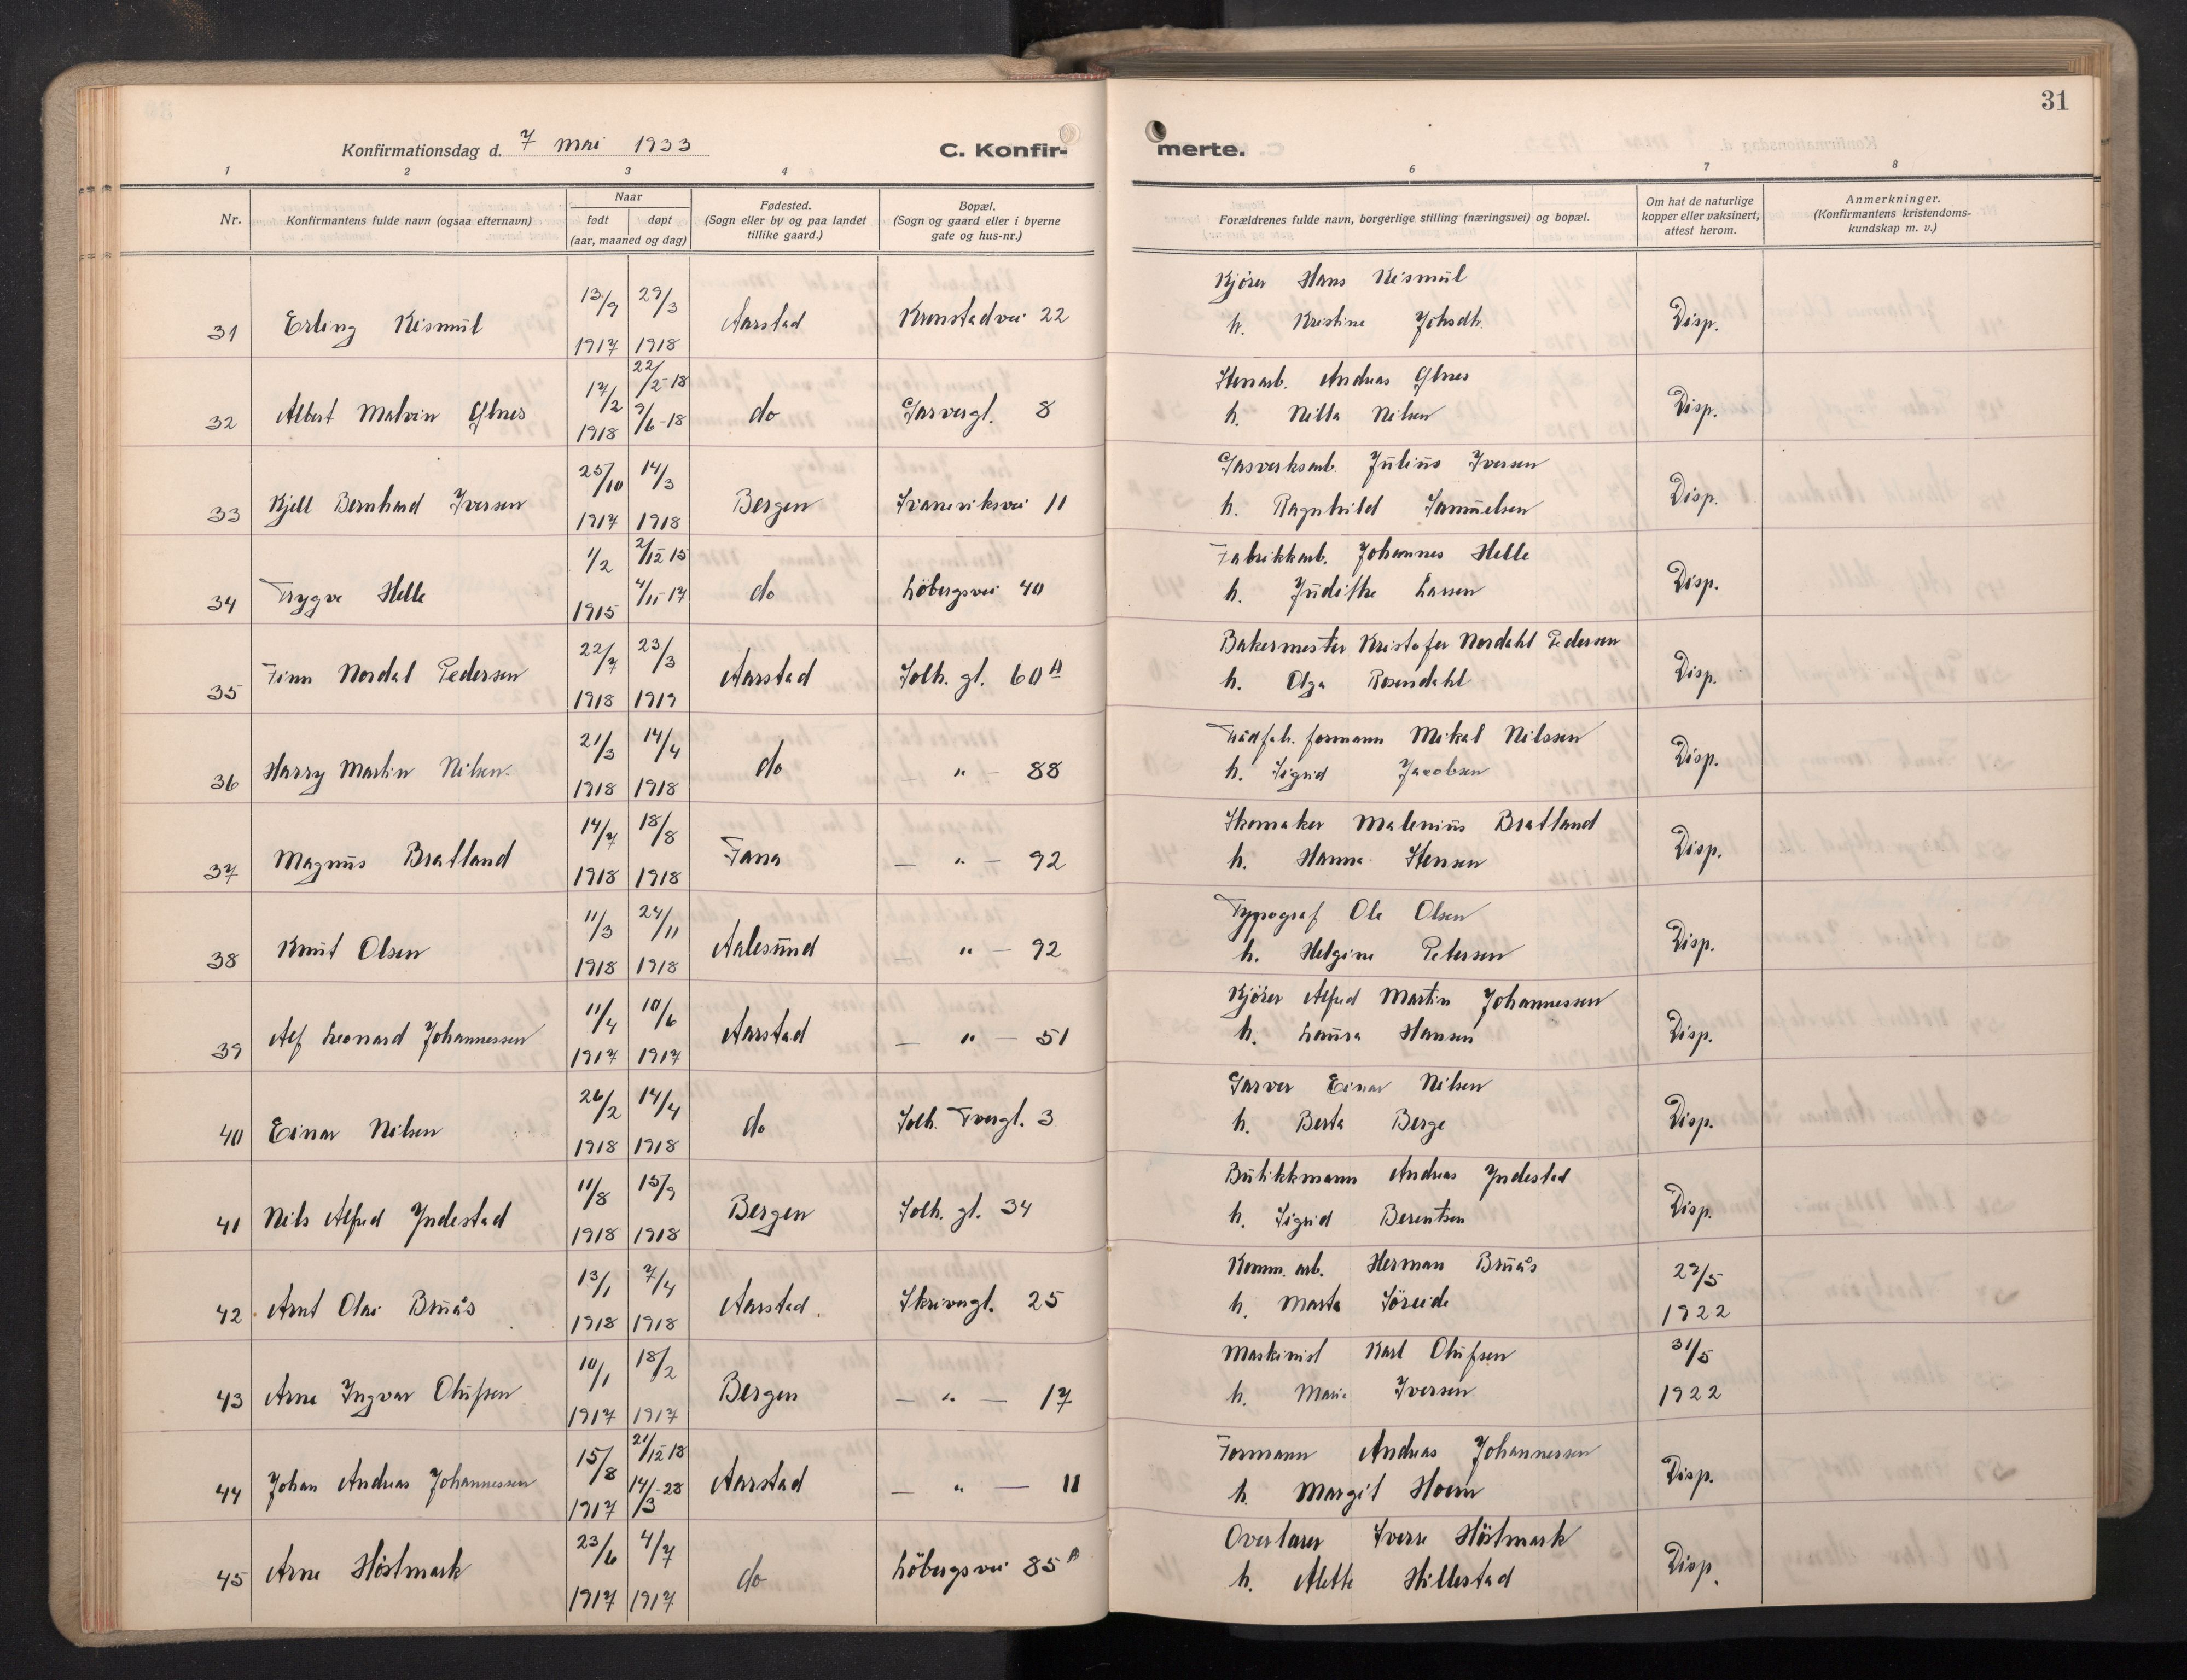 31
Konfirmationsdag d. 7 mai 1933
C. Konfir-
merte.
1 2 3 4 6 7 8
Nr.
Konfirmantens fulde navn (ogsaa efternavn)
Naar
født døpt
(aar, maaned og dag)
Fødested.
(Sogn eller by og paa landet
tillike gaard.)
Bopæl.
(Sogn og gaard eller i byerne
gate og hus-nr.)
Forældrenes fulde navn, borgerlige stilling (næringsvei) og bopæl.
Om hat de naturlige
kopper eller vaksinert,
attest herom.
Anmerkninger.
(Konfirmantens kristendoms-
kundskap m. v.)
31 Erling Kismul 13/9 1917 29/3 1918 Aarstad Kronstadvei 22
Kjörer Hans Kismul
h. Kristine Johsdh. Disp.
32 Albert Malvin 17/2 1918 22/2-18 9/6-18 do Garvergt. 8
Stenarb. Andreas
h. Nilla Nilsen Disp.
33 Kjell Bernhard Iversen 25/10 1917 14/3 1918 Bergen Svaneviksvei 11
Gasverksarb. Julius Iversen
h. Ragnhild Samuelsen Disp.
34 Trygve Helle 1/2 1915 2/12 15 4/11-17 do Löbergsvei 40
Fabrikkarb. Johannes Helle
h. Judithe Larsen Disp.
35 Finn Nordal Pedersen 22/7 1918 23/3 1919 Aarstad Solh. gt. 60A
Bakermester Kristofer Nordahl Pedersen
h. Olga Rosendahl Disp.
36 Harry Martin Nilsen. 21/3 1918 14/4 1918 do — " — 88
Trådfab. formann Mikal Nilssen
h. Sigrid Jacobsen Disp.
37 Magnus Bratland 14/7 1918 18/8 1918 Fana — " — 92
Skomaker Malenius Bratland
h. Hanna Stensen Disp.
38 Knut Olsen 11/3 1918 24/11 1918 Aalesund — " — 92
Typograf Ole Olsen
h. Helgine Petersen Disp.
39 Alf Leonard Johannessen 11/4 1917 10/6 1917 Aarstad — " — 51
Kjörer Alfred Martin Johannessen
h. Laura Hansen Disp.
40 Einar Nilsen 26/2 1918 14/4 1918 do Solh. Tvergt. 3
Garver Einar Nilsen
h. Berta Berge Disp.
41 Nils Alfred Yndestad 11/8 1918 15/9 1918 Bergen Solh. gt. 34
Butikkmann Andreas Yndestad
h. Sigrid Berentsen Disp.
42 Arnt Olai Bruås 13/1 1918 7/4 1918 Aarstad. Skivergt. 25
Komm. arb. Herman Bruås
h. Marta Söreide 27/5 1922
43 Arne Ingvar Olufsen 10/1 1917 18/2 1917 Bergen — " — 17
Maskinist Karl Olufsen
h. Marie Iversen 31/5 1922
44 Johan Andreas Johannessen 15/8 1917 21/12 18 14/3-28 Aarstad — " — 11
Formann Andreas Johannessen
h. Margit Disp.
45 Arne Höstmark 23/6 1917 4/7 1917 do Löbergsvei 85A
Overlærer Sverre Höstmark
h. Alette Hillestad Disp.